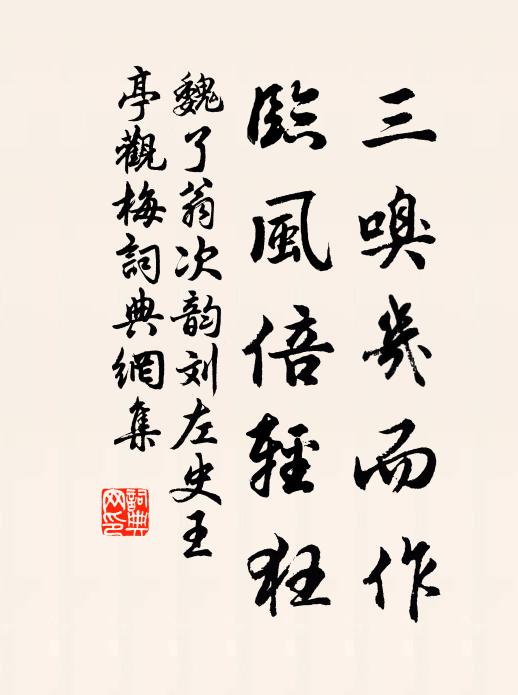 三嗅幾而作
臨風倍輕狂
魏了翁次韵刘左史王
亭觀梅詞典網集
詞典
网印